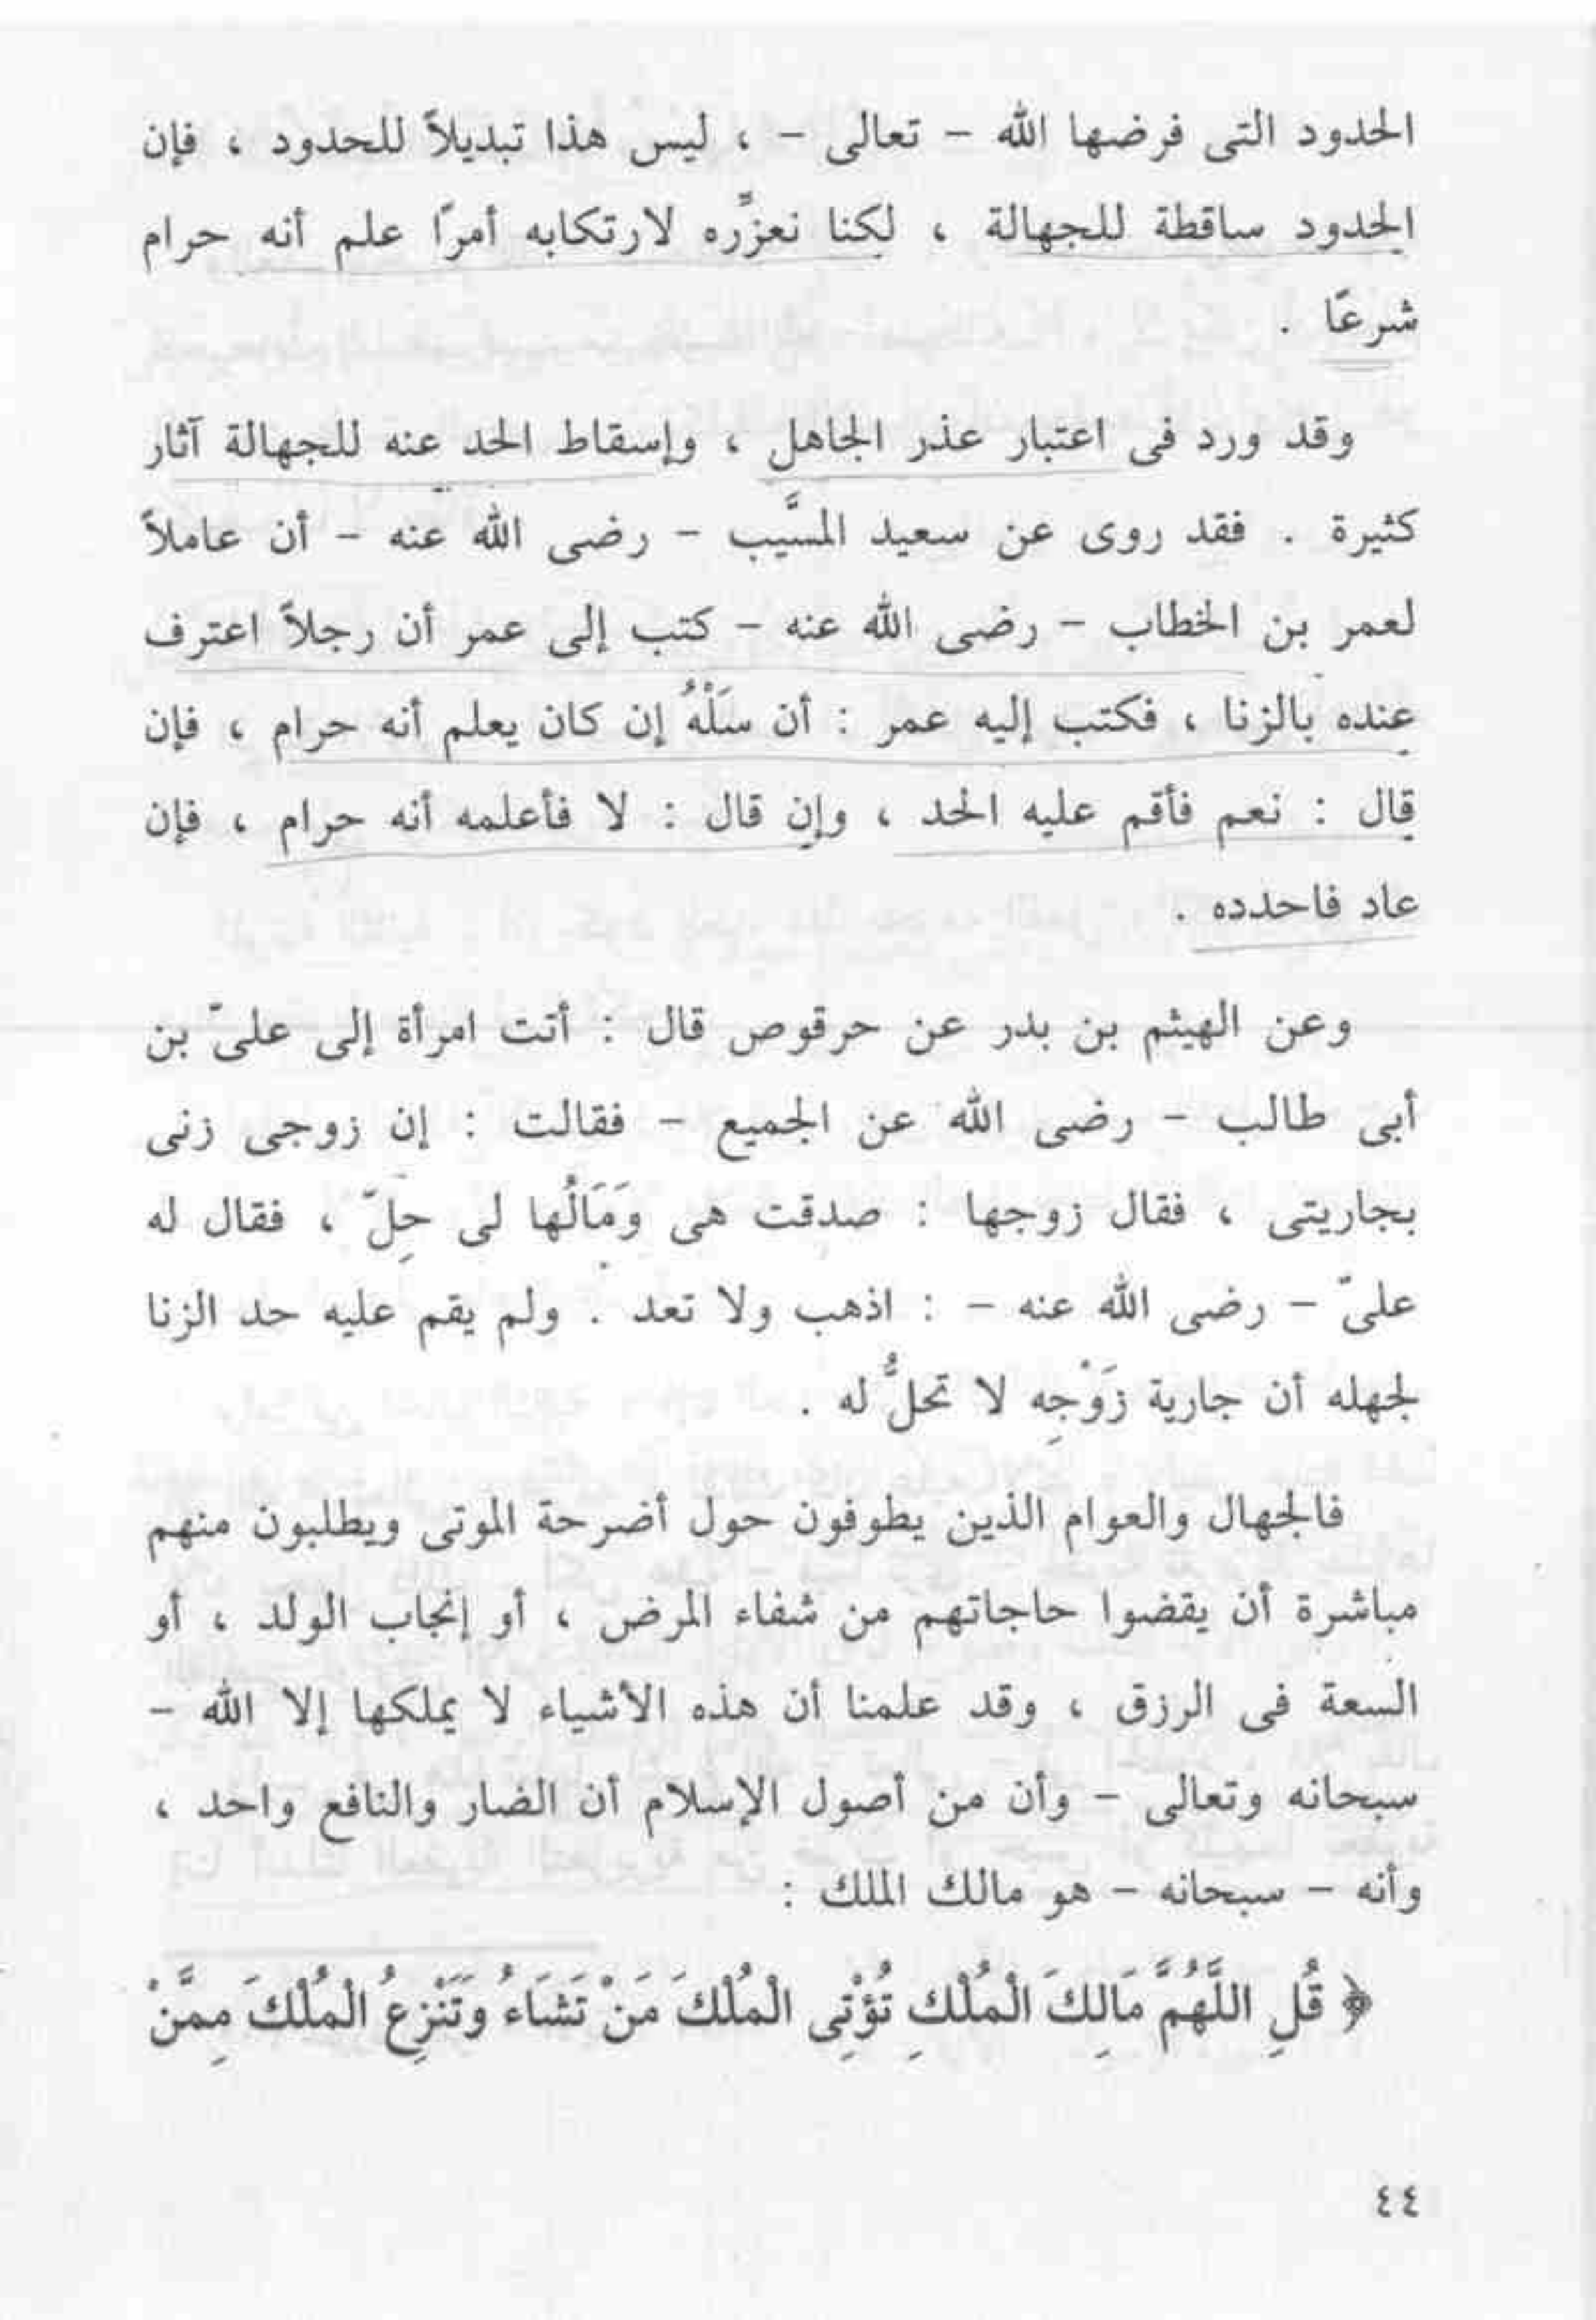 الحدود التى فرضها الله - تعالى - ، ليس هذا تبديلاً للحدود ، فإن
الحدود ساقطة للجهالة ، لكنا نعزِّره لارتكابه أمرًا علم أنه حرام
شرعًا .
وقد ورد فى اعتبار عذر الجاهل ، وإسقاط الحد عنه للجهالة آثار
كثيرة . فقد روى عن سعيد المسَّيب - رضى الله عنه - أن عاملاً
لعمر بن الخطاب - رضى الله عنه - كتب إلى عمر أن رجلاً اعترف
عنده بالزنا ، فكتب إليه عمر : أن سَلْهُ إن كان يعلم أنه حرام ، فإن
قال : نعم فأقم عليه الحد ، وإن قال : لا فأعلمه أنه حرام ، فإن
عاد فاحدده .
وعن الهيثم بن بدر عن حرقوص قال : أتت امرأة إلى علىّ بن
أبى طالب - رضى الله عن الجميع - فقالت : إن زوجى زنى
بجاريتى ، فقال زوجها : صدقت هى وَمَالُها لى حِلّ ، فقال له
علىّ - رضى الله عنه - : اذهب ولا تعد . ولم يقم عليه حد الزنا
لجهله أن جارية زَوْجِه لا تحلُّ له .
فالجهال والعوام الذين يطوفون حول أضرحة الموتى ويطلبون منهم
مباشرة أن يقضوا حاجاتهم من شفاء المرض ، أو إنجاب الولد ، أو
السعة فى الرزق ، وقد علمنا أن هذه الأشياء لا يملكها إلا الله -
سبحانه وتعالى - وأن من أصول الإسلام أن الضار والنافع واحد ،
وأنه - سبحانه - هو مالك الملك :
﴿ قُلِ اللَّهُمَّ مَالِكَ الْمُلْكِ تُؤْتِى الْمُلْكَ مَنْ تَشَاءُ وَتَنْزِعُ الْمُلْكَ مِمَّنْ
٤٤